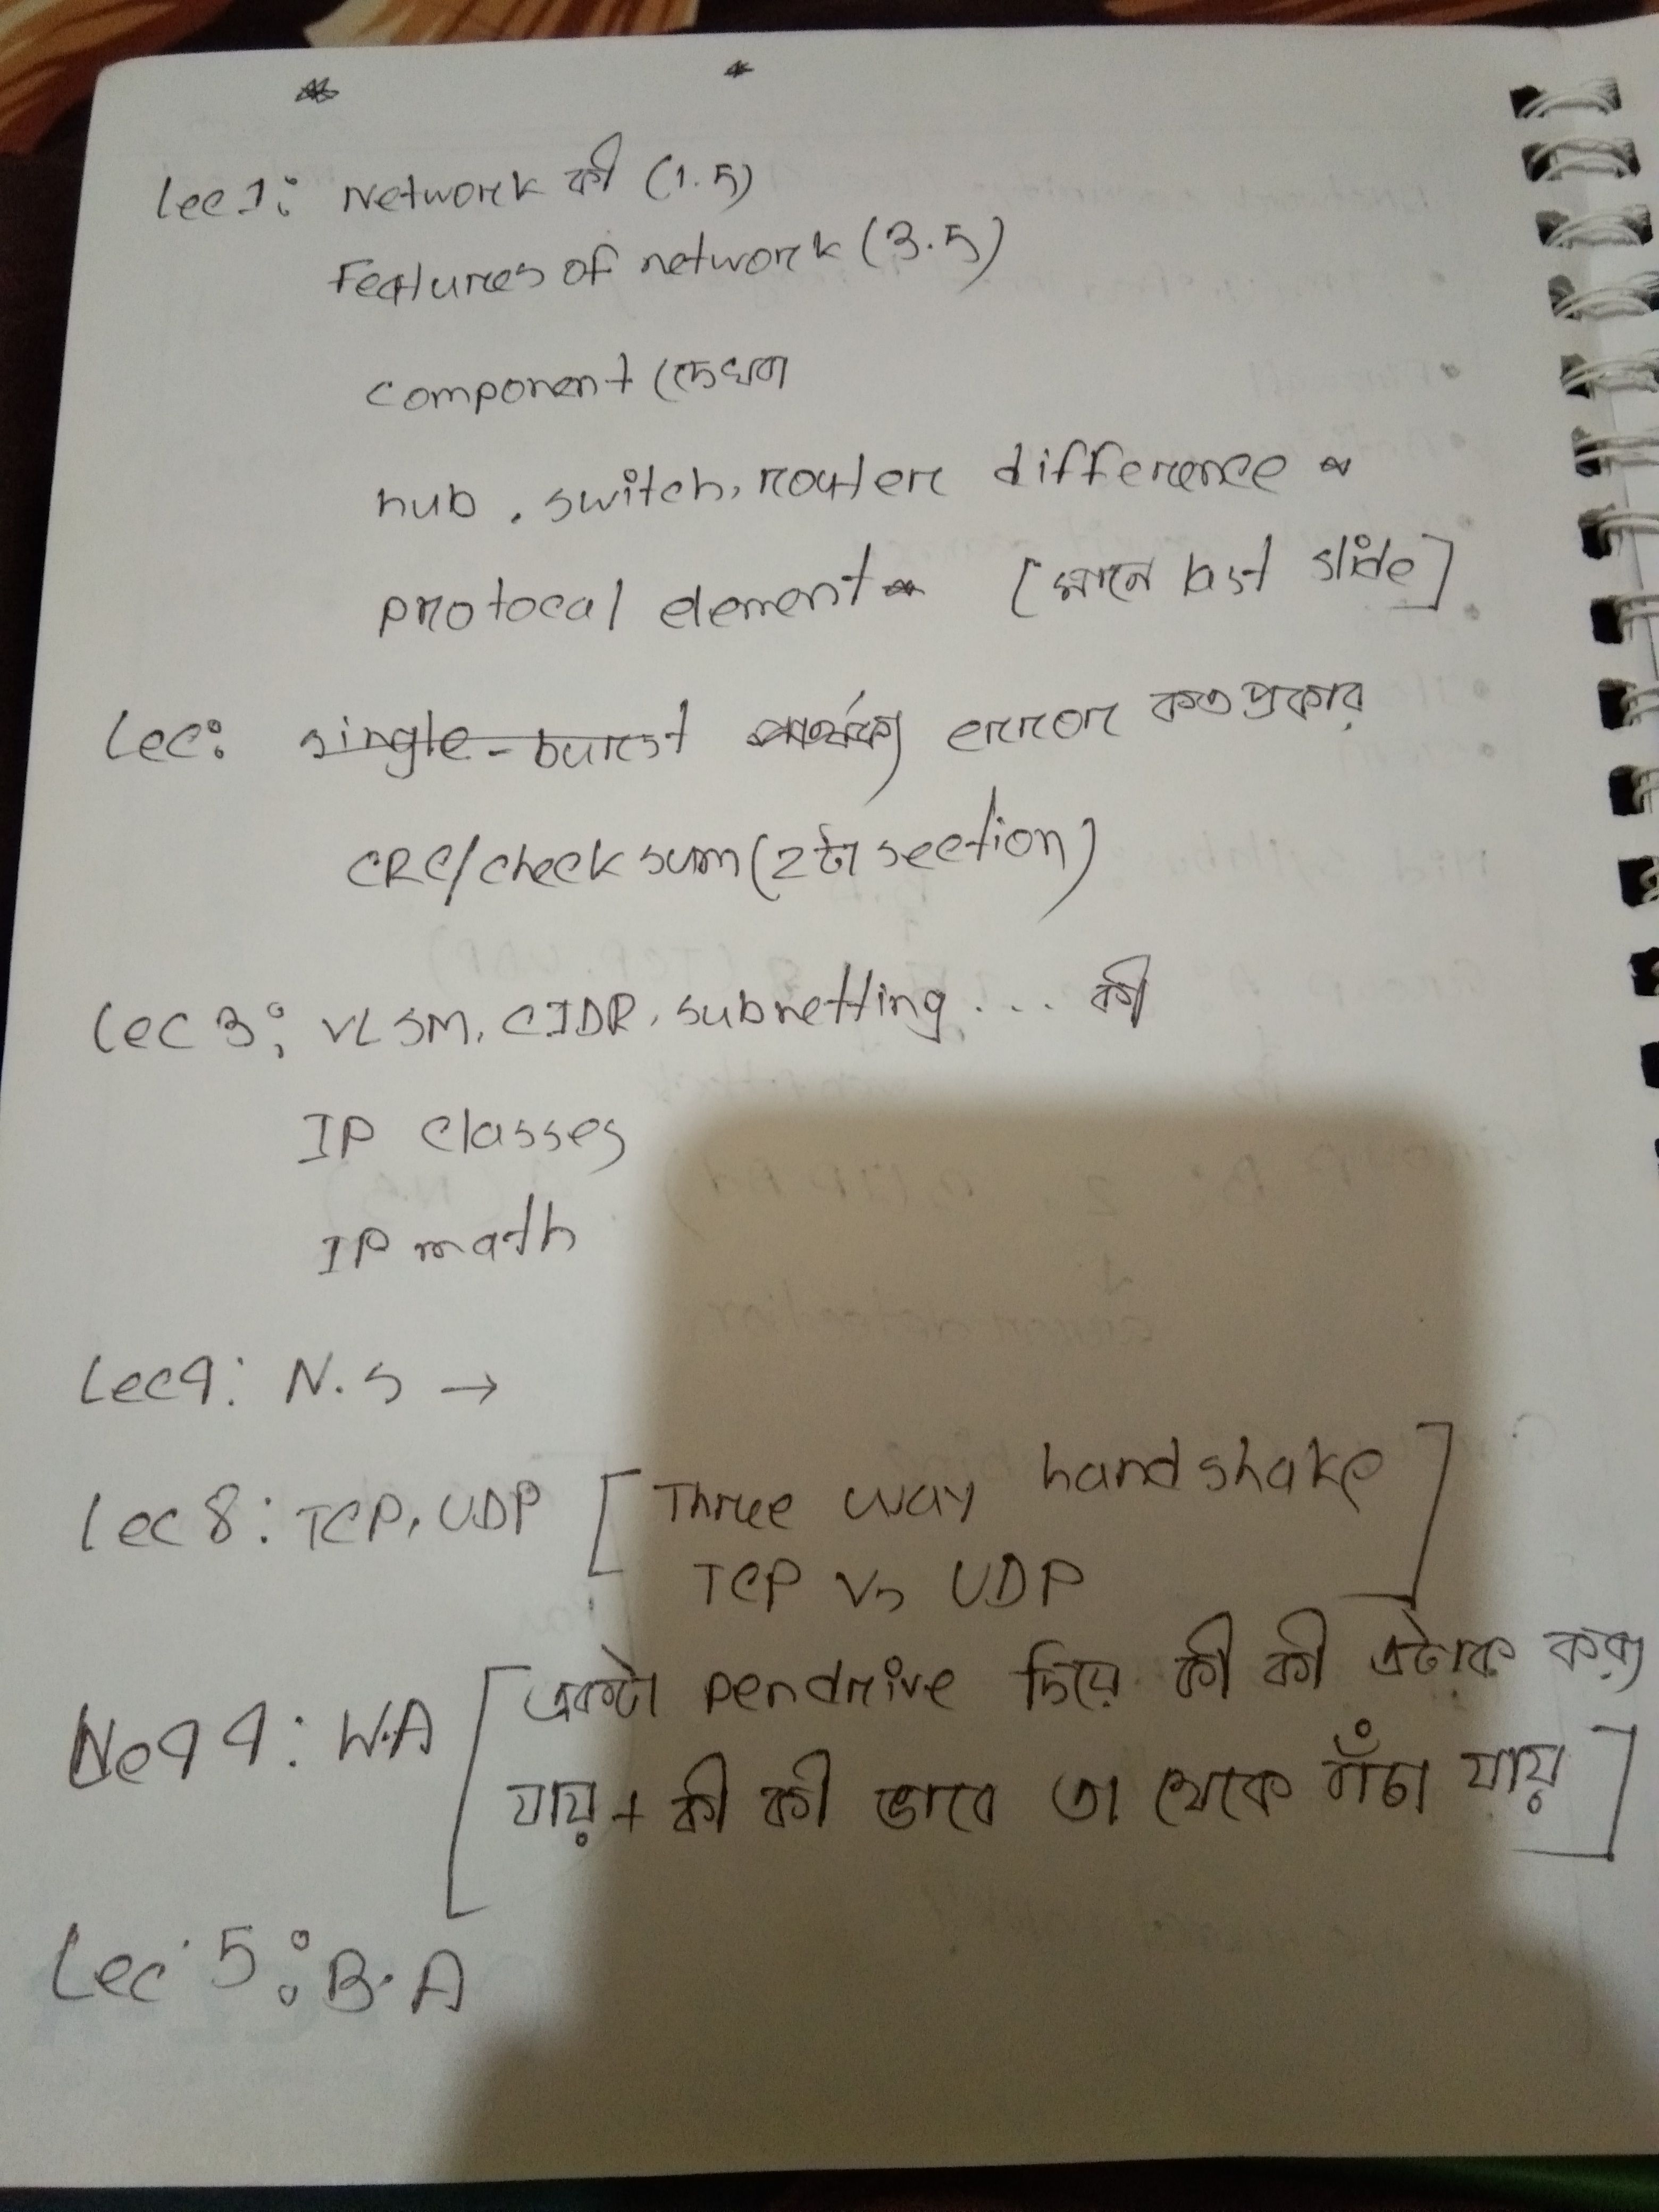 Lec 1: Network কী (1.5)
Features of network (3.5)
component (দেখব
hub, switch, router difference
protocal element [মানে last slide]
Lec: single-burst পার্থক্য error কত প্রকার
CRC/check sum (2টা section)
Lec 3: VLSM, CIDR, subnetting ... কী
IP classes
IP math
Lec 9: N.S →
Lec 8: TCP, UDP [Three way handshake
TCP Vs UDP]
9: W.A [একটা pendrive দিয়ে কী কী এটাক করা
যায় + কী কী ভাবে তা থেকে বাঁচা যায়]
Lec 5: B.A